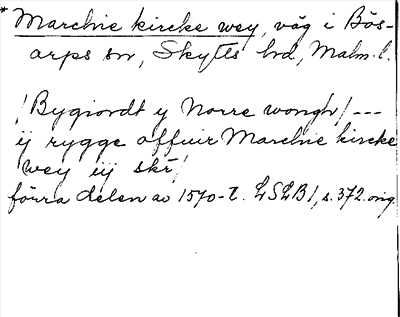 * Marchie kircke wey, väg i Bös-
arps sn, Skytts hd, Malm. l.
/Bygiordt y Norre wongh/ ---
ij rygge offuir Marchie kircke
wey iij skr/
förra delen av 1570-t. LSLB 1, s. 372. orig.